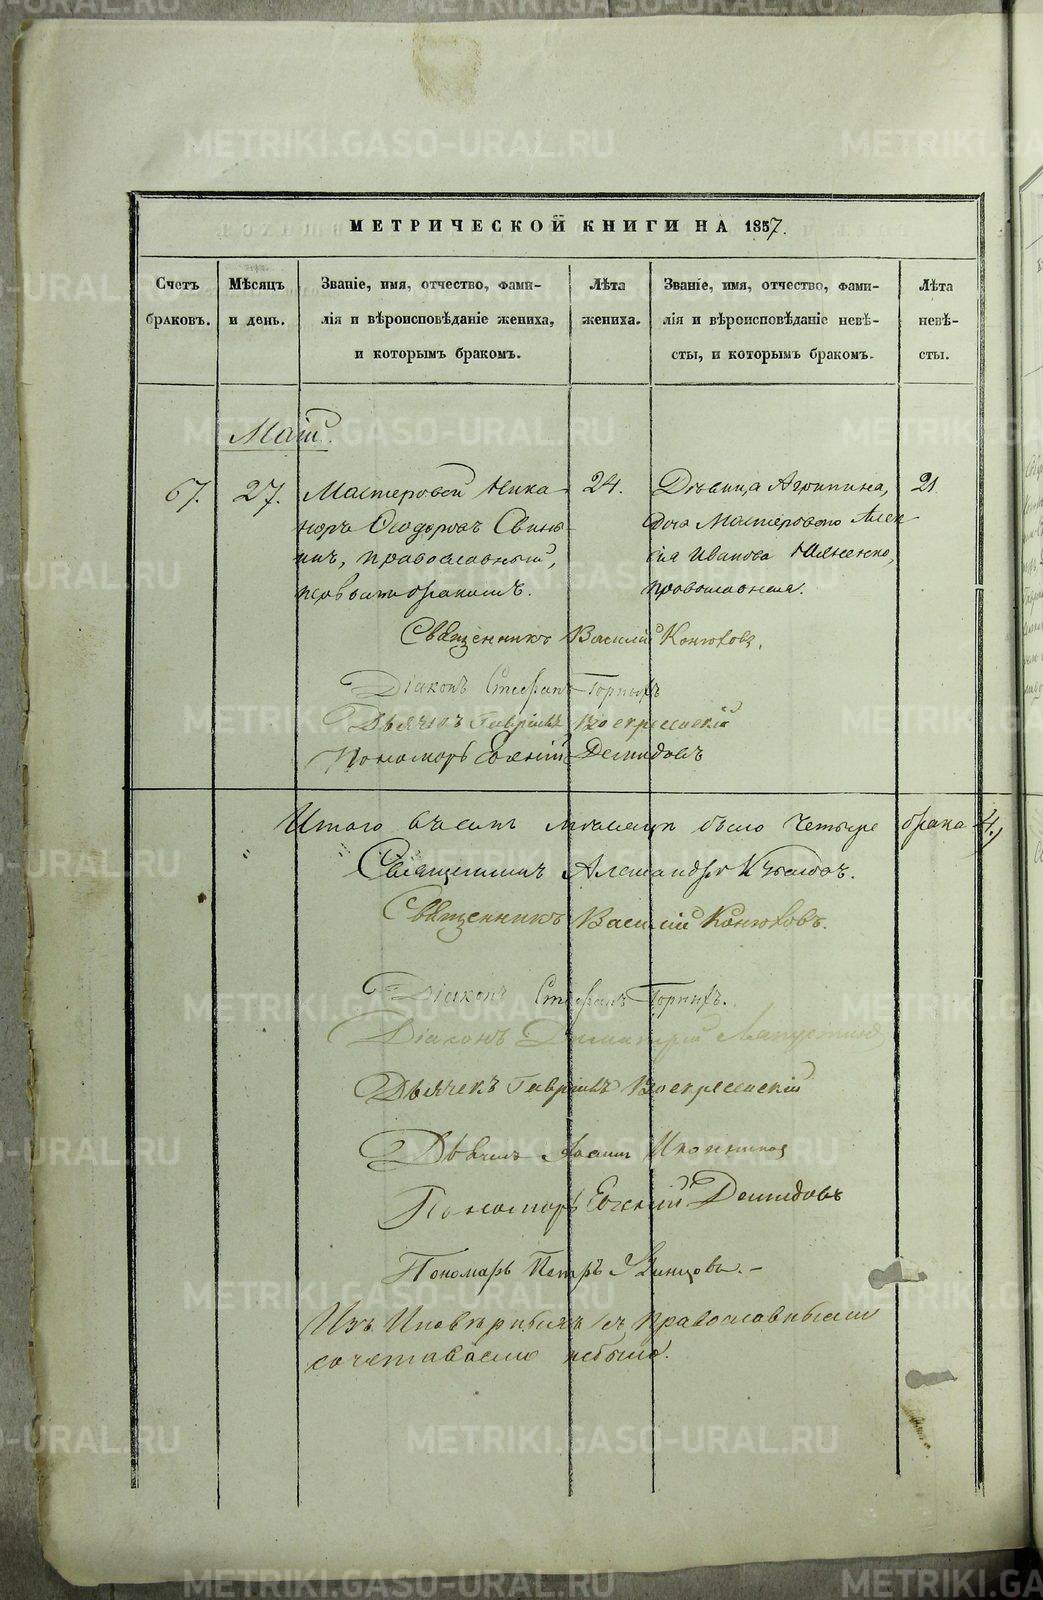 МЕТРИЧЕСКОЙ КНИГИ НА 1857.
Счетъ браковъ.
Мѣсяцъ и день.
Званіе, имя, отчество, фами-
лія и вѣроисповѣданіе жениха,
и которымъ бракомъ.
Лѣта жениха.
Званіе, имя, отчество, фами-
лія и вѣроисповѣданіе невѣ-
сты, и которымъ бракомъ.
Лѣта невѣ-
сты.
Маій.
67.
27.
Мастеровой Ника-
норъ Ѳеодоровъ Свинь-
инъ, православный,
первымъ бракомъ.
24.
Дѣвица Агрипина,
дочь Мастероваго Алек-
сія Иванова
православная.
21
Священникъ Василій Конюховъ.
Діаконъ Стефанъ Горныхъ
Дьячекъ Гавріилъ Воскресенскій
Пономарь Евгеній Демидовъ
Итого въ семъ мѣсяцѣ было четыре брака 4.
Священникъ Александръ
Священникъ Василій Конюховъ.
Діаконъ Стефанъ Горныхъ.
Діаконъ Димитрій Ляпустинъ
Дьячекъ Гавріилъ Воскресенскій
Дьячекъ Иконниковъ
Пономарь Евгеній Демидовъ
Пономарь Петръ Удинцовъ.-
Изъ Иновѣрныхъ съ православными
сочетаваемо небыло.
METRIKI.GASO-URAL.RU